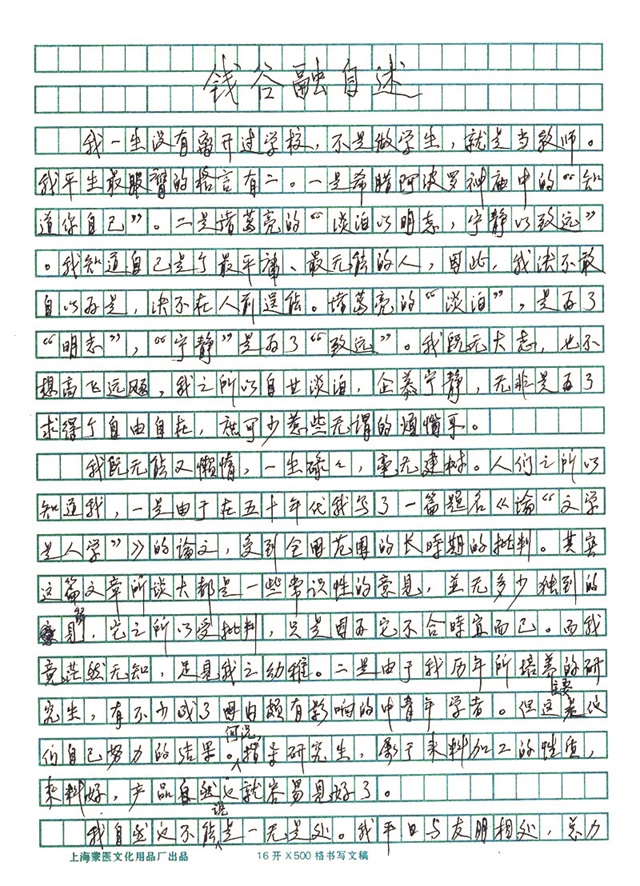 钱谷融自述
我一生没有离开过学校,不是做学生,就是当教师。
我平生最服膺的格言有二。一是希腊阿波罗神庙中的“知
道你自己”。二是诸葛亮的“淡泊以明志,宁静以致远”
。我知道自己是个最平庸、最无能的人,因此,我决不敢
自以为是,决不在人前逞能。诸葛亮的“淡泊”,是为了
“明志”,“宁静”是为了“致远”。我既无大志,也不
想高飞远飏,我之所以自甘淡泊,企慕宁静,无非是为了
求得个自由自在,庶可少惹些无谓的烦恼耳。
我既无能又懒惰,一生碌々,毫无建树。人们之所以
知道我,一是由于在五十年代我写了一篇题名《论“文学
是人学”》的论文,受到全国范围的长时期的批判。其实
这篇文章所谈大都是一些常识性的意见,并无多少独到的
见解,它之所以受批判,只是因为它不合时宜而已。而我
竟茫然无知,足见我之幼稚。二是由于我历年所培养的研
究生,有不少成了国内颇有影响的中青年学者。但这主要是他
们自己努力的结果。何况,指导研究生,属于来料加工的性质,
来料好,产品自然也就容易见好了。
我自然也不能说是一无是处。我平日与友朋相处,总力
上海蒙医文化用品厂出品
16开×500格书写文稿